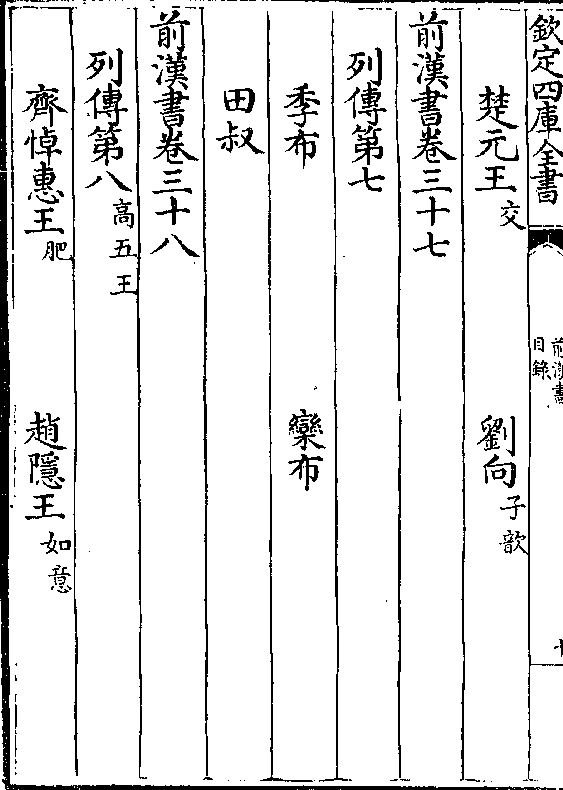 欽定四庫全書
前漢書
目錄
楚元王交 劉向子歆
前漢書卷三十七
列傳第七
季布 欒布
田叔
前漢書卷三十八
列傳第八高五王
齊悼惠王肥 趙隱王如意